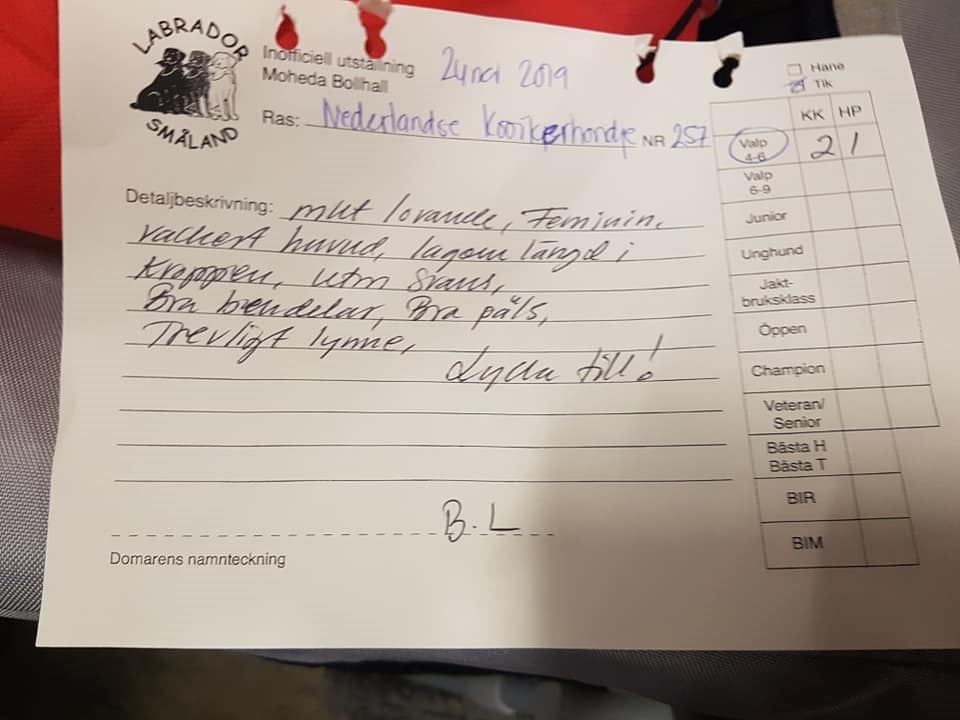 LABRADOR
SMÅLAND
Inofficiell utställning
Moheda Bollhall
2019
Ras: Nederlandse Kooikerhondje NR 257
Hane
Tik
KK HP
Valp 4-6 2 1
Valp 6-9
Junior
Unghund
Jakt-
bruksklass
Öppen
Champion
Veteran/
Senior
Bästa H
Bästa T
BIR
BIM
Detaljbeskrivning: mkt lovande, Feminin,
vackert huvud, lagom längd i
Kroppen, utm Svans,
Bra bendelar, Bra päls,
Trevligt lynne,
Lycka till!
B.L
Domarens namnteckning